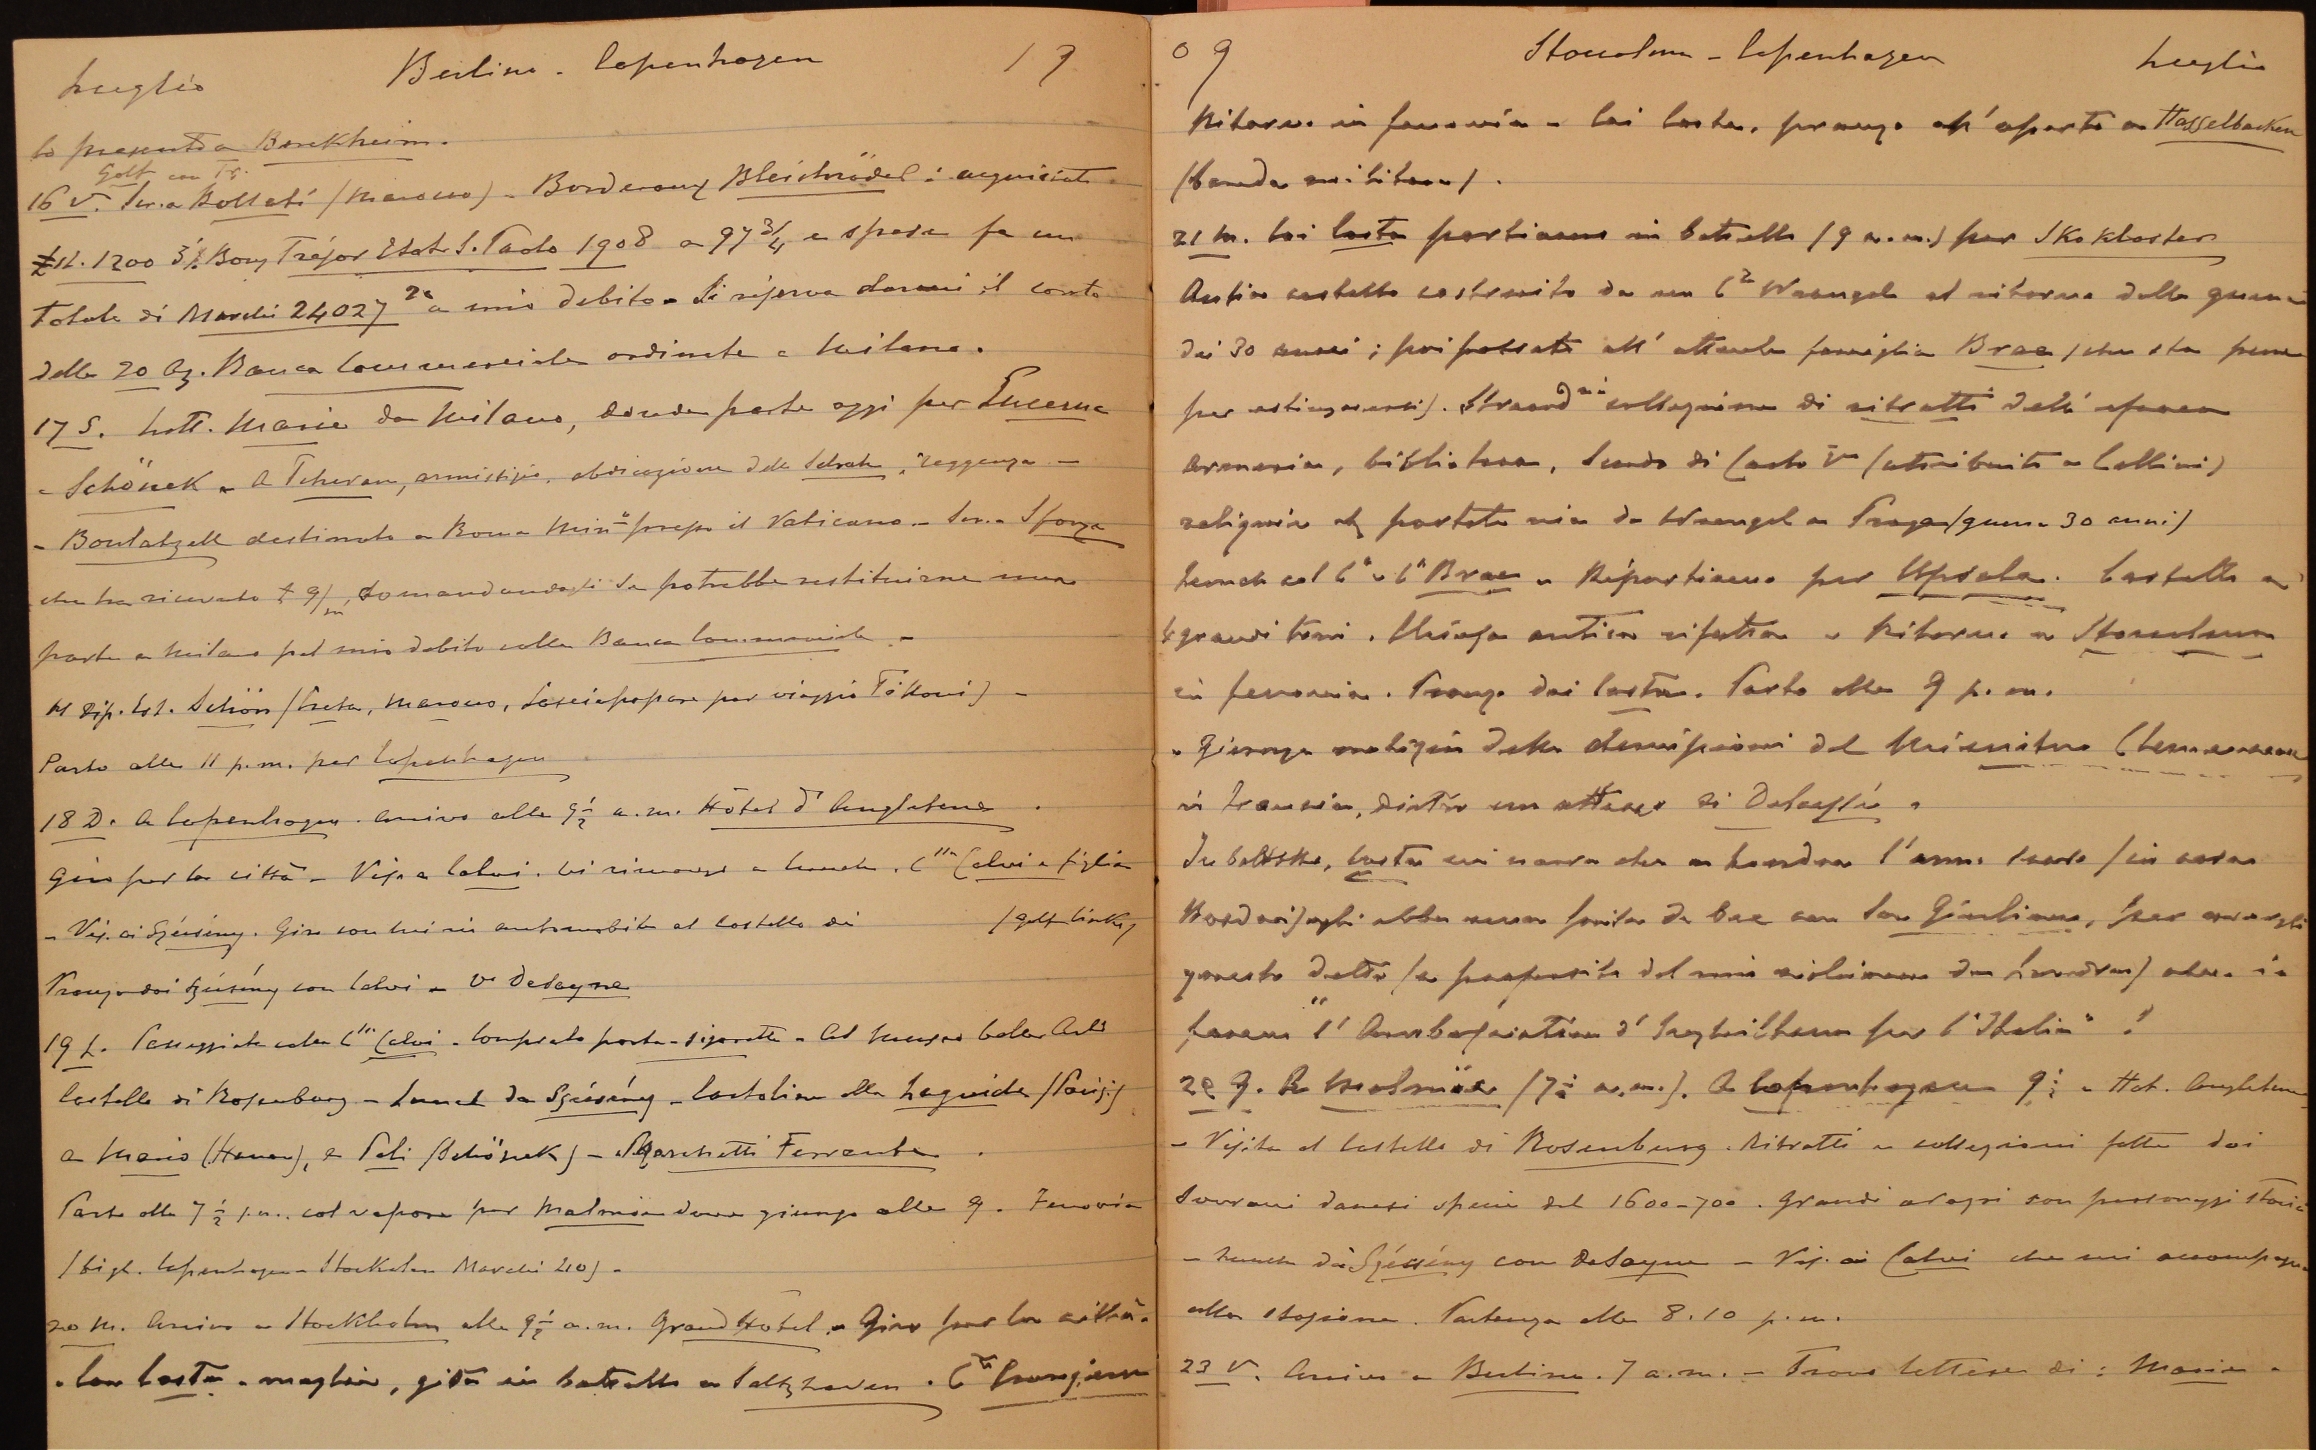 luglio Berlino - Copenhagen 19
lo presento a Borckheim.
Golf con Tr.
16 V. Ser.a Bollati (Marocco) - Bordereaux Bleichröder: acquisiti
£ st. 1200 5% Bons Trésor Etat S. Paolo 1908 a 97 3/4 e spese fa un
totale di Marchi 24027 20 a mio debito. Si riserva darmi il conto
delle 20 Az. Banca Commerciale ordinate a Milano.
17 S. Lett. Maria da Milano, donde parte oggi per Lucerna
- Schönek - A Teheran, armistizio, abdicazione dello Schah, reggenza -
- destinato a Roma Min° presso il Vaticano - Ser.a Sforza
che ha ricevuto £ 9/m, domandandogli se potrebbe restituirne una
parte a Milano pel mio debito colla Banca Commerciale -
Al Dip. Est. Schön (Creta, Marocco, viaggio Tittoni) -
Parto alle 11 p.m. per Copenhagen
18 D. A Copenhagen. Arrivo alle 9 1/2 a.m. Hôtel d'Angleterre.
Giro per la città - Vis. a Calvi. Vi rimango a lunch. C.ssa Calvi e figlia
- Vis. ai Széchény. Giro con lui in automobile al castello di (golf links)
Pranzo dai Széchény con Calvi - Vte Delaigue
19 L. Passeggiata colla C.ssa Calvi - Comprato porta-sigarette - Al Museo belle Arti
Castello di Rosenburg - Lunch da Széchény - Cartoline alla Laguiche (Parigi)
a Mario (Hanau), a Poli (Schönek) - Marchetti Ferrante.
Parto alle 7 1/2 p.m. col vapore per Malmöe dove giungo alle 9. Ferrovia
(bigl. Copenhagen - Stockolm Marchi 40) -
20 M. Arrivo a Stockholm alle 9 1/2 a.m. Grand Hôtel. - Giro per la città.
- Con Costa e moglie, gita in battello a Saltzhaven. C.ssa
09 Stoccolma - Copenhagen luglio
Ritorno in ferrovia - Coi Costa, pranzo all'aperto a Hasselbacken
(banda militare).
21 M. Coi Costa partiamo in battello (9 a.m.) per Skokloster
Antico castello costruito da un Cte Wrangel al ritorno dalla guerra
dei 30 anni; poi passato all'attuale famiglia Brae (che sta pure
per estinguersi). Straord.ria collezione di ritratti dell'epoca
armeria, biblioteca, Scudo di Carlo V° (attribuito a Cellini)
reliquie portate via da Wrangel a Praga (guerra 30 anni)
Lunch col Cte e C.ssa Brae - Ripartiamo per Upsala. Castello a
4 grandi torri. Chiesa antica rifatta - Ritorno a Stoccolma
in ferrovia. Pranzo dai Costa. Parto alle 9 p.m.
- Giunge notizia delle dimissioni del Ministro Clemenceau
in Francia, dietro un attacco di Delcassé.
Costa mi narra che a Londra l'anno scorso (in casa
Bordonari) egli ebbe una lite con San Giuliano, per avergli
questo detto (a proposito del mio richiamo da Londra) che io
facevo "l'Ambasciatore d'Inghilterra per l'Italia"!
22 G. A Malmöe (7 1/2 a.m.). A Copenhagen 9 1/2 - Hot. Angleterre
- Visita al castello di Rosenburg. Ritratti e collezioni fatte dai
sovrani danesi specie del 1600-700. Grandi arazzi con personaggi storici
- Lunch da Széchény con Delaigue - Vis. ai Calvi che mi accompagna
alla stazione. Partenza alle 8.10 p.m.
23 V. Arrivo a Berlino. 7 a.m. - Trovo lettere di: Maria -